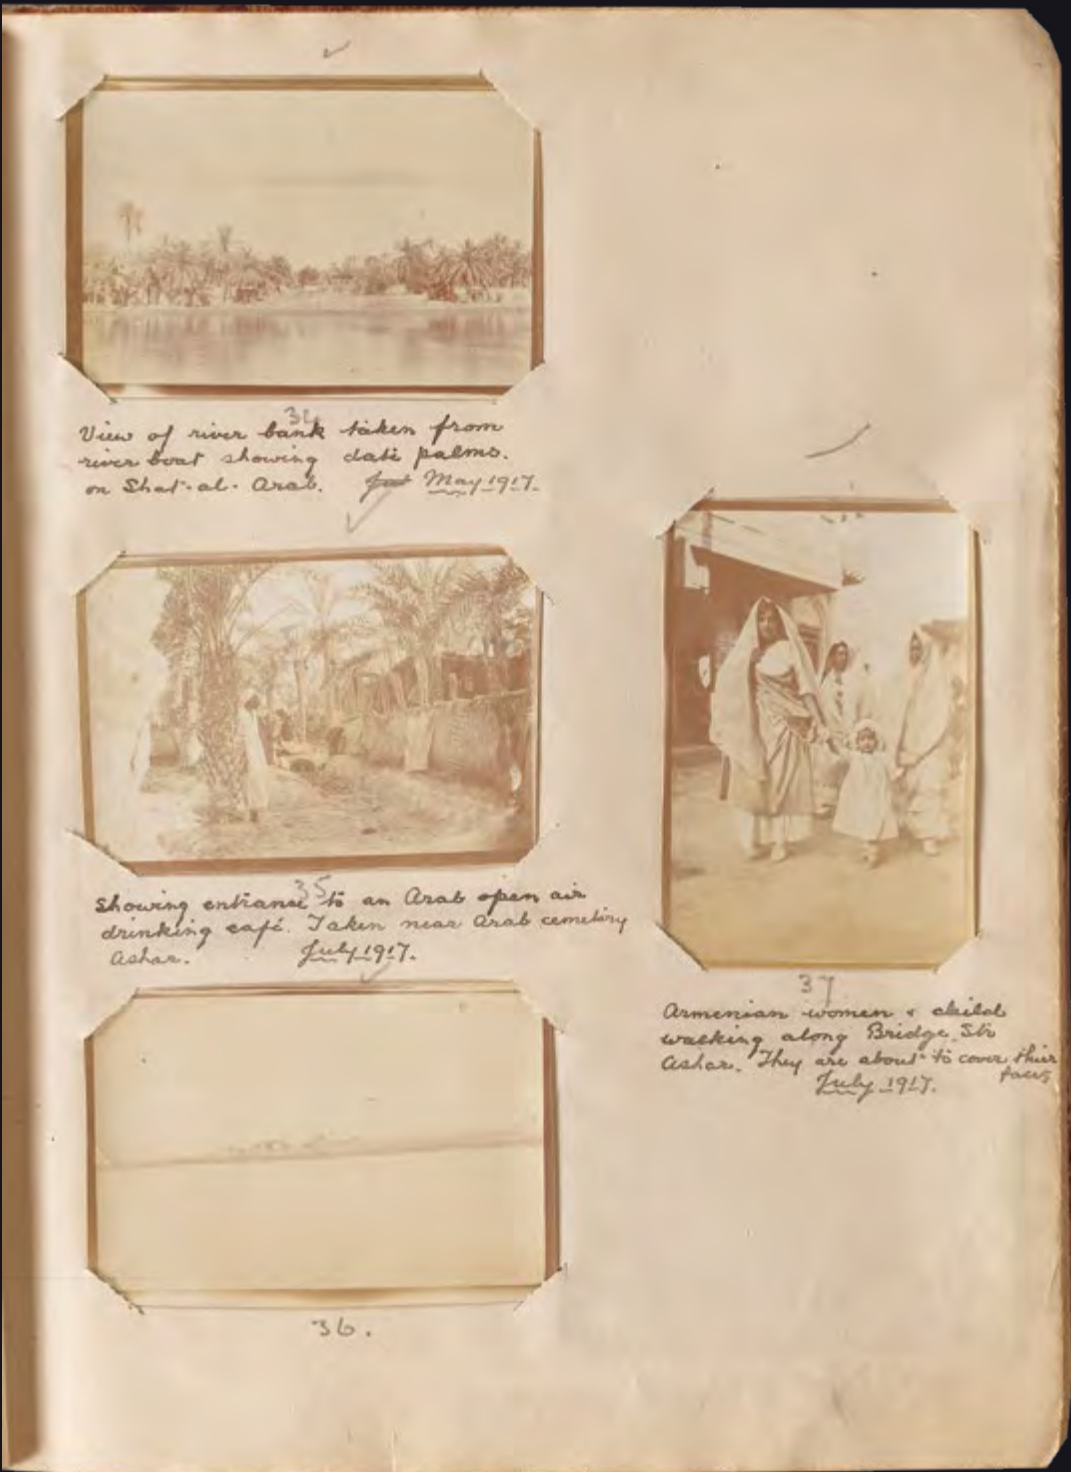 34
View of river bank taken from
river boat showing date palms.
on Shat-al-Arab. May 1917.
35
Showing entrance to an Arab open air
drinking café. Taken near Arab cemetiry
Ashar. July 1917.
36.
37
Armenian women & child
walking along Bridge. Str
Ashar. They are about to cover thier
faces
July 1917.